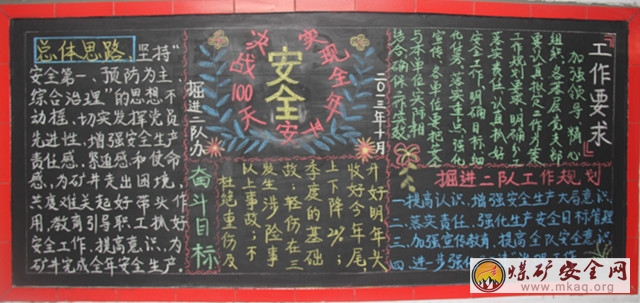 总体思路、坚持“
安全第一、预防为主,
综合治理”的思想不
动摇,切实发挥党员
先进性,增强安全生产
责任感,紧迫感和使命
感,为矿井走出困境,
共度难关起好带头作
用,教育引导职工抓好
安全工作,提高意识,为
矿井完成全年安全生产.
决战100天
安全
实现全年安
掘进二队办
二〇一三年十月
奋斗目标
杜绝重伤及
以上事故;不
发生涉险事
故;轻伤在三
季度的基础
上下降2%;
收好今年尾
开好明年头
工作要求
加强领导 精心
组织,各基层党支部
要认真拟定工作方案
工作规划要求,明确
落实责任,认真抓好
安全工作,明确目标,细
化任务,落实重点,强化
宣传,各单位要把
与本单位实际相
结合确保工作实效
掘进二队工作规划
一、提高认识,增强安全生产大局意识
二、落实责任、强化生产安全目标管理
三、加强宣传教育,提高全队安全意识
四、进一步强化
煤矿安全网
www.mkaq.org